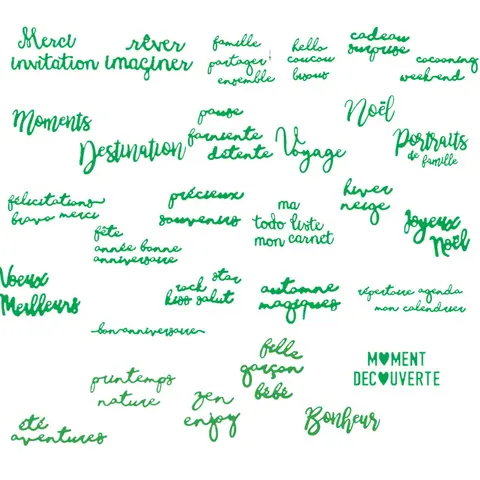 Merci
invitation
rêver
imaginer
famille
partager
ensemble
hello
coucou
bisous
cadeau
surprise
cocooning
weekend
Moments
Destination
pause
farniente
détente
Voyage
Noël
Portraits
de famille
félicitations
bravo merci
fête
année bonne
anniversaire
précieux
souvenirs
ma
todo liste
mon carnet
hiver
neige
Joyeux
Noël
Voeux
Meilleurs
rock star
kiss salut
automne
magiques
répertoire agenda
mon calendrier
bon anniversaire
printemps
nature
fille
garçon
bébé
MOMENT
DECOUVERTE
été
aventures
zen
enjoy
Bonheur